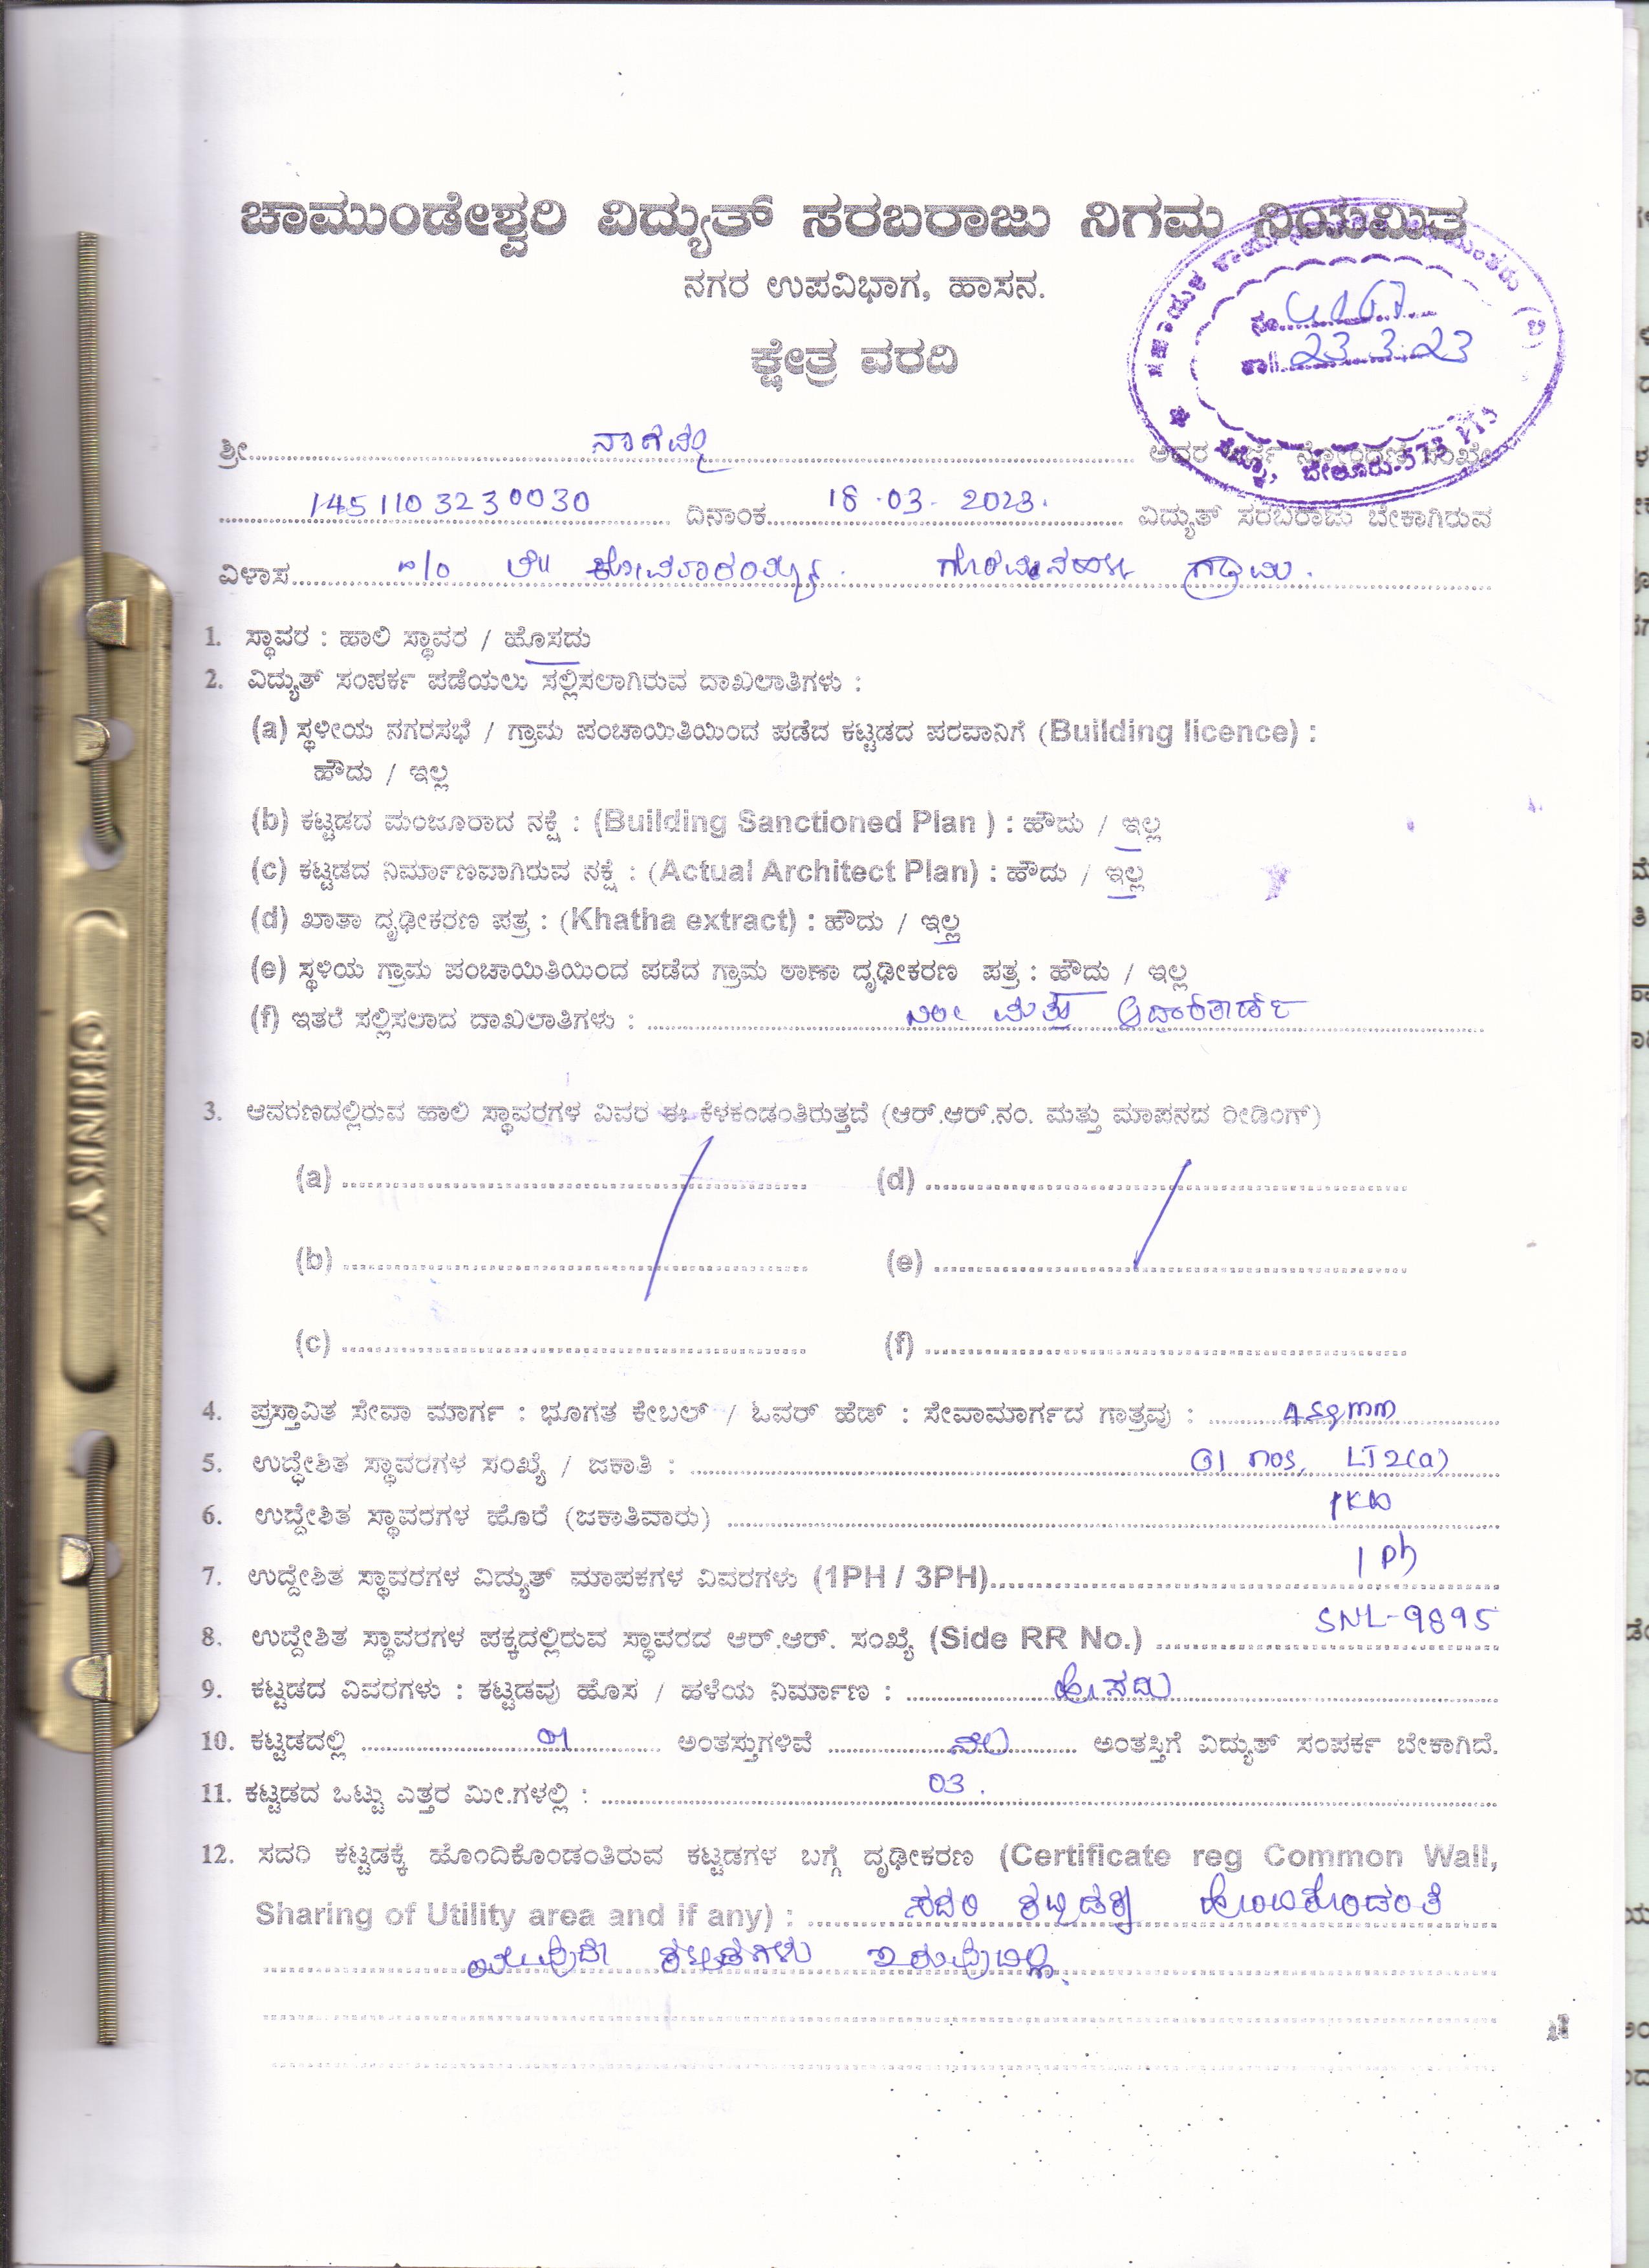 ಚಾಮುಂಡೇಶ್ವರಿ ವಿದ್ಯುತ್ ಸರಬರಾಜು ನಿಗಮ ನಿಯಮಿತ
ನಗರ ಉಪವಿಭಾಗ, ಹಾಸನ.
ನಂ
ತಾ॥ 23.3.23
ಬೇಲೂರು-573 115
ಕ್ಷೇತ್ರ ವರದಿ
ಶ್ರೀ ನಾಗಮ್ಮ ಅವರ ಅರ್ಜಿ ನೋಂದಣಿ ಸಂಖ್ಯೆ
1451103230030 ದಿನಾಂಕ 18.03.2023. ವಿದ್ಯುತ್ ಸರಬರಾಜು ಬೇಕಾಗಿರುವ
ವಿಳಾಸ ಗ್ರಾಮ.
1. ಸ್ಥಾವರ : ಹಾಲಿ ಸ್ಥಾವರ / ಹೊಸದು
2. ವಿದ್ಯುತ್ ಸಂಪರ್ಕ ಪಡೆಯಲು ಸಲ್ಲಿಸಲಾಗಿರುವ ದಾಖಲಾತಿಗಳು :
(a) ಸ್ಥಳೀಯ ನಗರಸಭೆ / ಗ್ರಾಮ ಪಂಚಾಯಿತಿಯಿಂದ ಪಡೆದ ಕಟ್ಟಡದ ಪರವಾನಿಗೆ (Building licence) :
ಹೌದು / ಇಲ್ಲ
(b) ಕಟ್ಟಡದ ಮಂಜೂರಾದ ನಕ್ಷೆ : (Building Sanctioned Plan ) : ಹೌದು / ಇಲ್ಲ
(c) ಕಟ್ಟಡದ ನಿರ್ಮಾಣವಾಗಿರುವ ನಕ್ಷೆ : (Actual Architect Plan) : ಹೌದು / ಇಲ್ಲ
(d) ಖಾತಾ ದೃಢೀಕರಣ ಪತ್ರ : (Khatha extract) : ಹೌದು / ಇಲ್ಲ
(e) ಸ್ಥಳಿಯ ಗ್ರಾಮ ಪಂಚಾಯಿತಿಯಿಂದ ಪಡೆದ ಗ್ರಾಮ ಠಾಣಾ ದೃಢೀಕರಣ ಪತ್ರ : ಹೌದು / ಇಲ್ಲ
(f) ಇತರೆ ಸಲ್ಲಿಸಲಾದ ದಾಖಲಾತಿಗಳು : ಮತ್ತು ಆಧಾರ್‌ಕಾರ್ಡ್
3. ಆವರಣದಲ್ಲಿರುವ ಹಾಲಿ ಸ್ಥಾವರಗಳ ವಿವರ ಈ ಕೆಳಕಂಡಂತಿರುತ್ತದೆ (ಆರ್.ಆರ್.ನಂ. ಮತ್ತು ಮಾಪನದ ರೀಡಿಂಗ್)
(a) (d)
(b) (e)
(c) (f)
4. ಪ್ರಸ್ತಾವಿತ ಸೇವಾ ಮಾರ್ಗ : ಭೂಗತ ಕೇಬಲ್ / ಓವರ್ ಹೆಡ್ : ಸೇವಾಮಾರ್ಗದ ಗಾತ್ರವು : 4 Sqmm
5. ಉದ್ಧೇಶಿತ ಸ್ಥಾವರಗಳ ಸಂಖ್ಯೆ / ಜಕಾತಿ : 01 nos, LT2(a)
6. ಉದ್ದೇಶಿತ ಸ್ಥಾವರಗಳ ಹೊರೆ (ಜಕಾತಿವಾರು) 1KW
7. ಉದ್ದೇಶಿತ ಸ್ಥಾವರಗಳ ವಿದ್ಯುತ್ ಮಾಪಕಗಳ ವಿವರಗಳು (1PH / 3PH) 1 Ph
8. ಉದ್ದೇಶಿತ ಸ್ಥಾವರಗಳ ಪಕ್ಕದಲ್ಲಿರುವ ಸ್ಥಾವರದ ಆರ್.ಆರ್. ಸಂಖ್ಯೆ (Side RR No.) SNL-9895
9. ಕಟ್ಟಡದ ವಿವರಗಳು : ಕಟ್ಟಡವು ಹೊಸ / ಹಳೆಯ ನಿರ್ಮಾಣ : ಹೊಸದು
10. ಕಟ್ಟಡದಲ್ಲಿ 01 ಅಂತಸ್ತುಗಳಿವೆ ನೆಲ ಅಂತಸ್ತಿಗೆ ವಿದ್ಯುತ್ ಸಂಪರ್ಕ ಬೇಕಾಗಿದೆ.
11. ಕಟ್ಟಡದ ಒಟ್ಟು ಎತ್ತರ ಮೀ.ಗಳಲ್ಲಿ : 03.
12. ಸದರಿ ಕಟ್ಟಡಕ್ಕೆ ಹೊಂದಿಕೊಂಡಂತಿರುವ ಕಟ್ಟಡಗಳ ಬಗ್ಗೆ ದೃಢೀಕರಣ (Certificate reg Common Wall,
Sharing of Utility area and if any) : ಸದರಿ ಕಟ್ಟಡಕ್ಕೆ ಹೊಂದಿಕೊಂಡಂತೆ
ಯಾವುದೇ ಕಟ್ಟಡಗಳು ಇರುವುದಿಲ್ಲ.
CHINKY